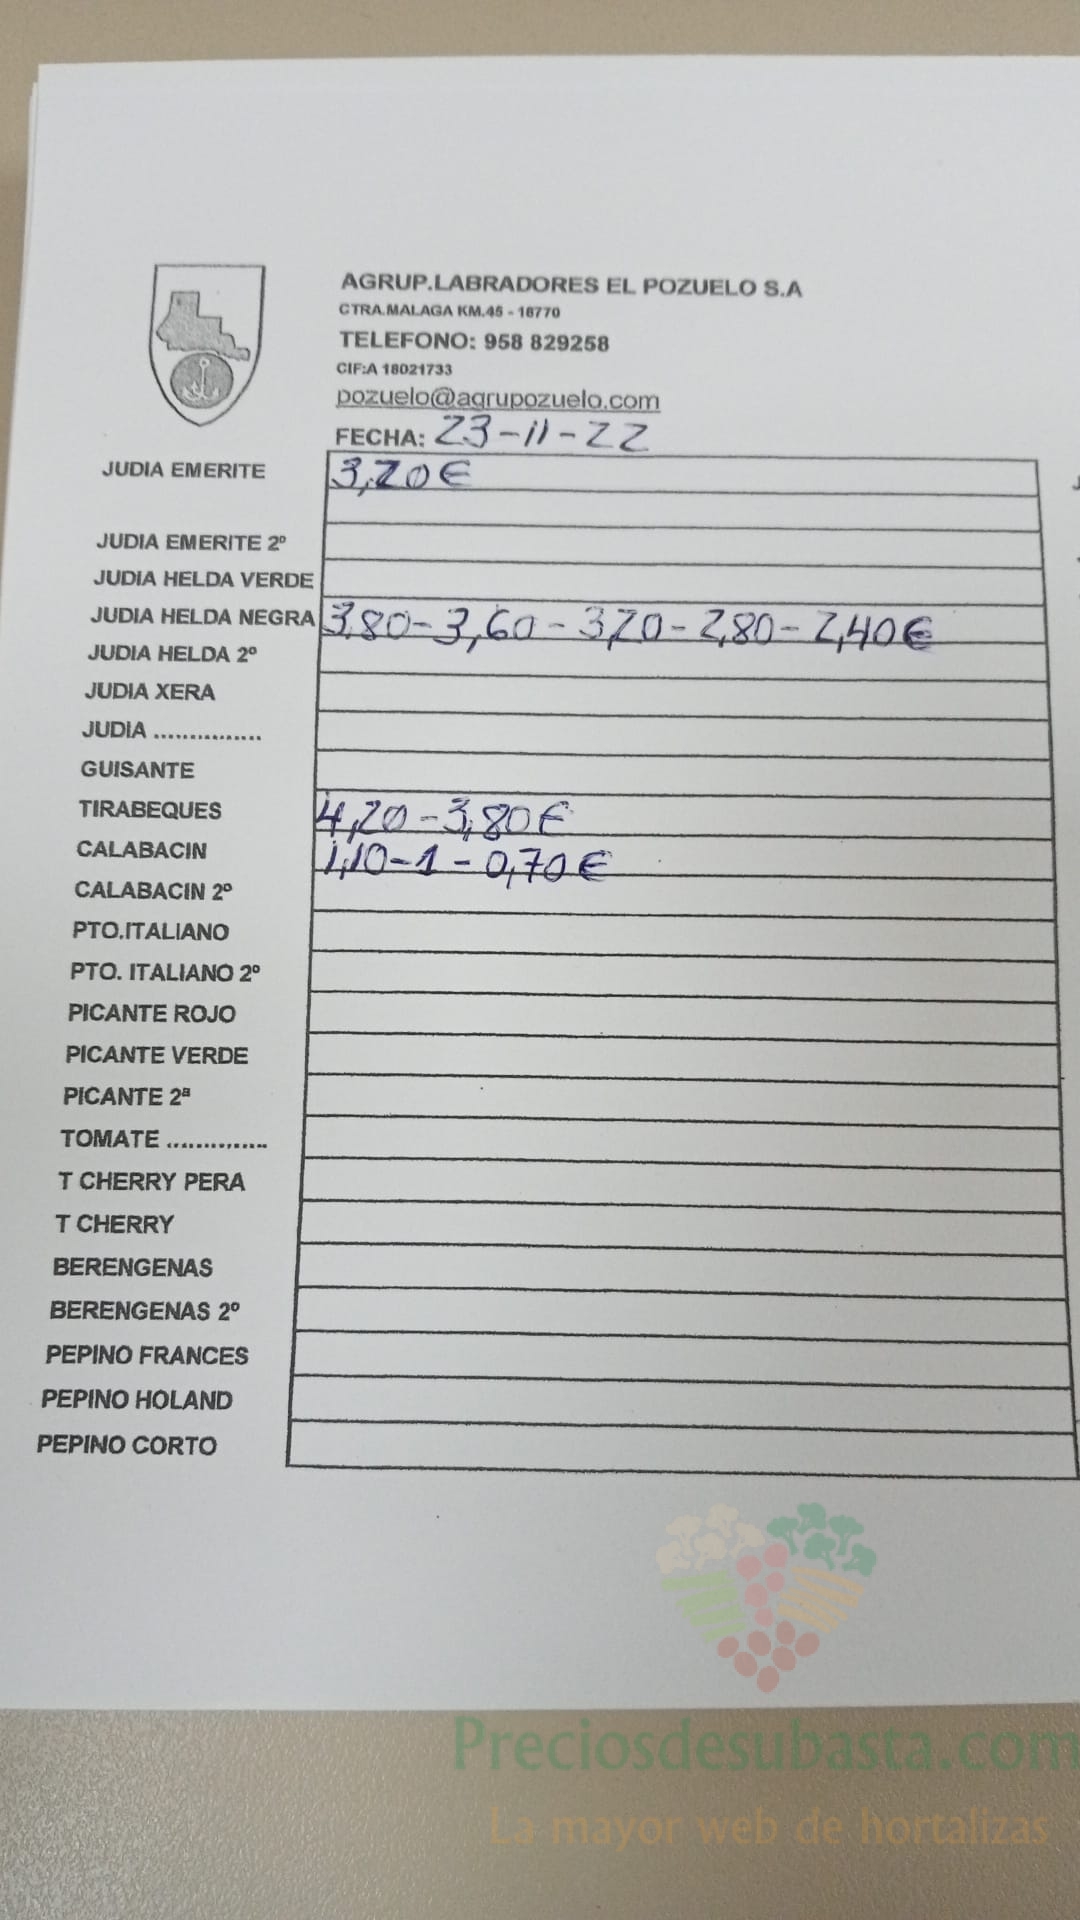 AGRUP.LABRADORES EL POZUELO S.A
CTRA.MALAGA KM.45 - 18770
TELEFONO: 958 829258
CIF:A 18021733
pozuelo@agrupozuelo.com
FECHA: 23-11-22
JUDIA EMERITE 3,20€
JUDIA EMERITE 2º
JUDIA HELDA VERDE
JUDIA HELDA NEGRA 3,80-3,60-3,20-2,80-2,40€
JUDIA HELDA 2º
JUDIA XERA
JUDIA ...............
GUISANTE
TIRABEQUES 4,20-3,80€
CALABACIN 1,10-1-0,70€
CALABACIN 2º
PTO.ITALIANO
PTO. ITALIANO 2º
PICANTE ROJO
PICANTE VERDE
PICANTE 2ª
TOMATE ..............
T CHERRY PERA
T CHERRY
BERENGENAS
BERENGENAS 2º
PEPINO FRANCES
PEPINO HOLAND
PEPINO CORTO
Preciosdesubasta.com
La mayor web de hortalizas